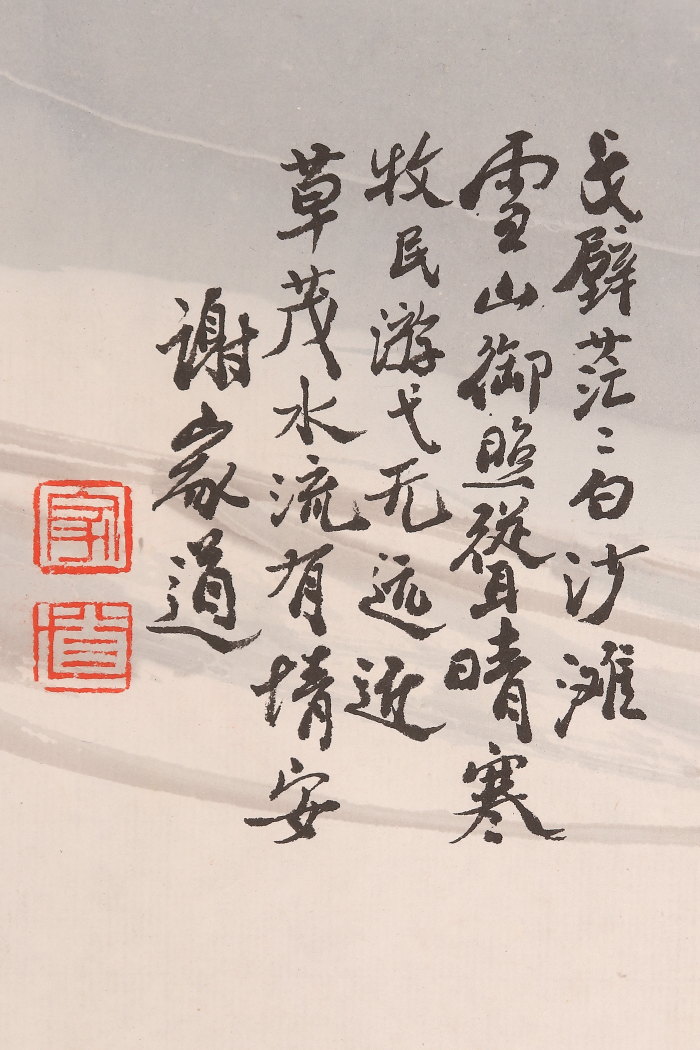 戈壁茫々白沙滩
雪山御照聳晴寒
牧民游弋无远近
草茂水流有情安
谢家道